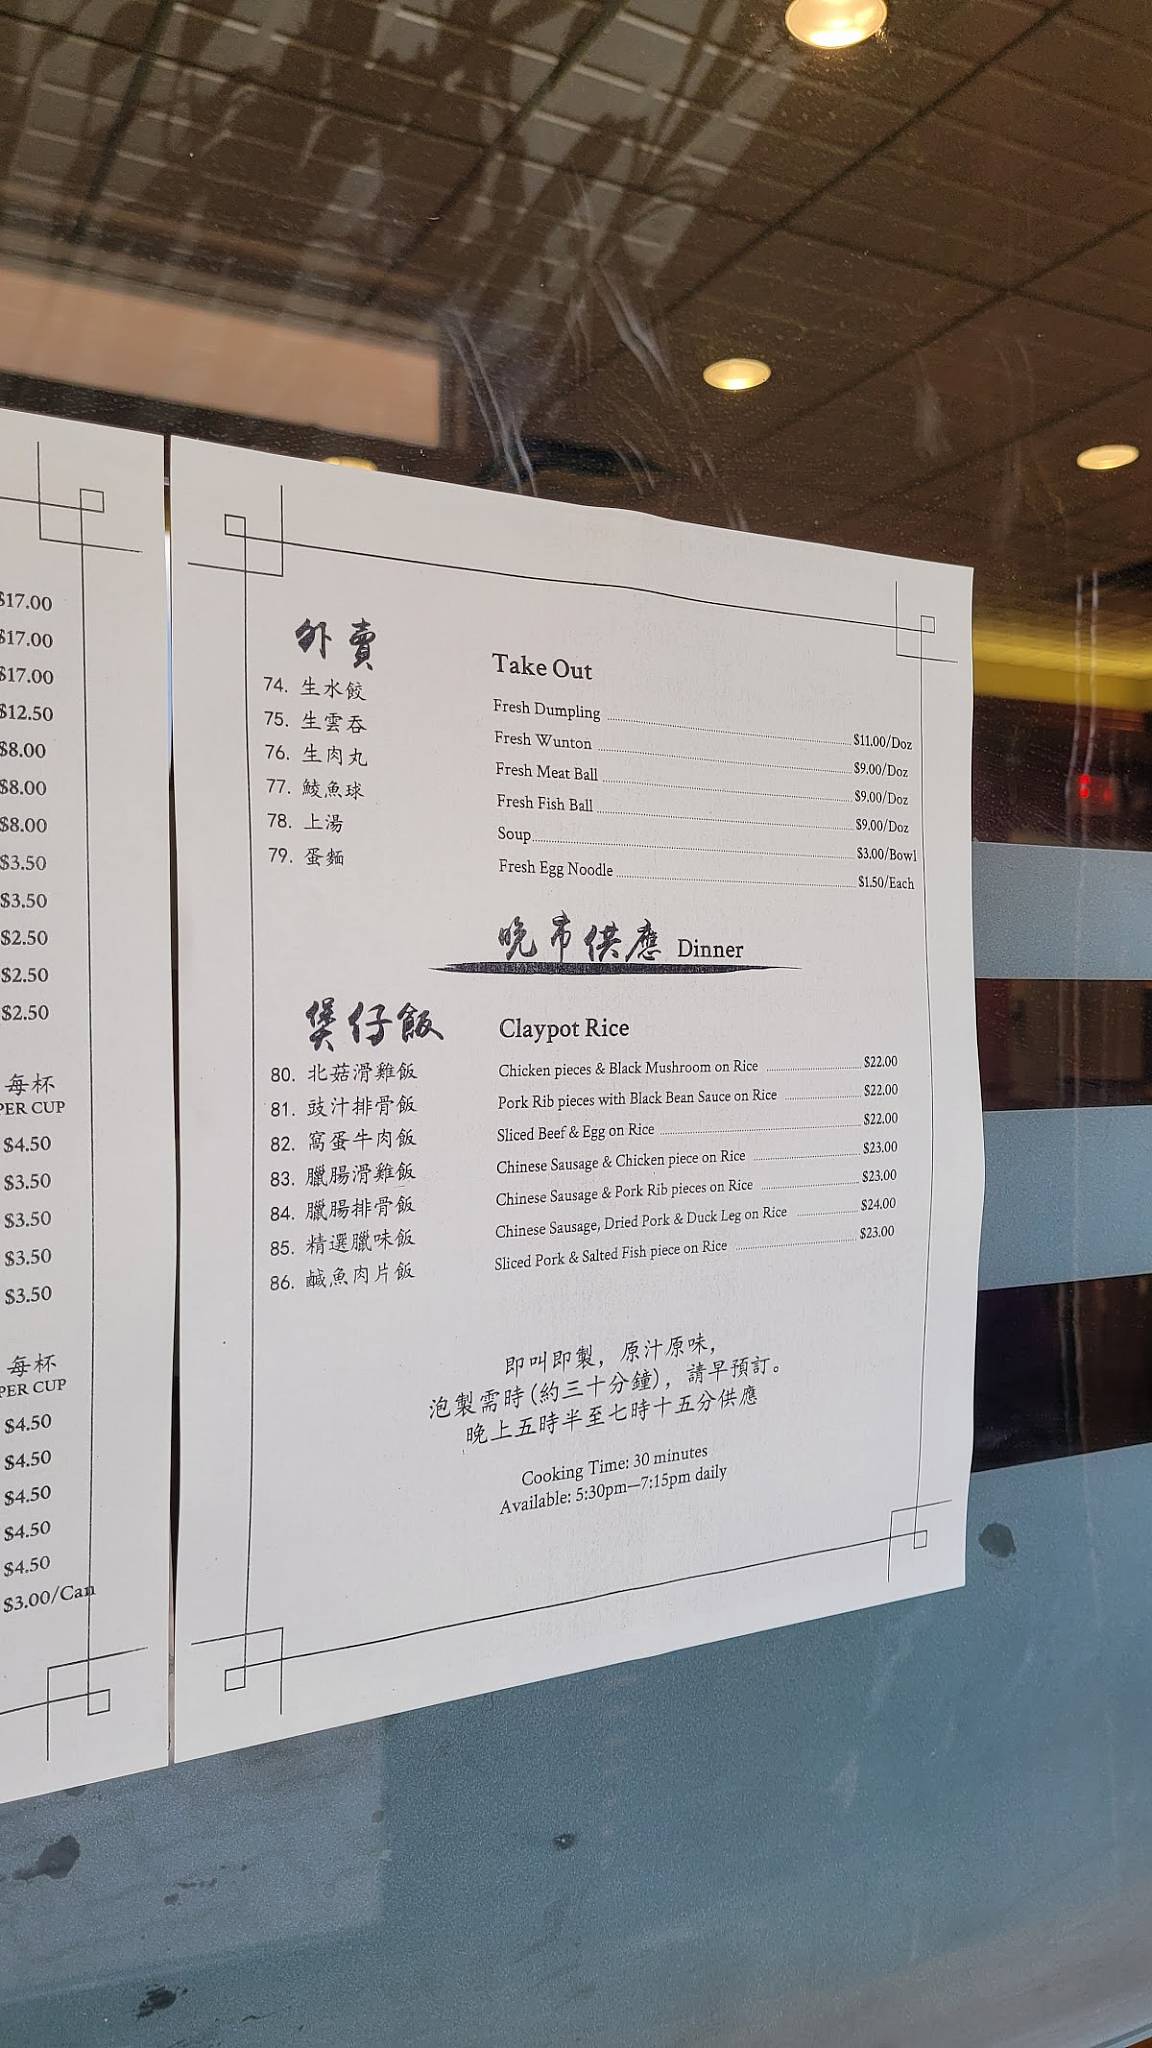 $17.00
$17.00
$17.00
$12.50
$8.00
$8.00
$8.00
$3.50
$3.50
$2.50
$2.50
$2.50
每杯
PER CUP
$4.50
$3.50
$3.50
$3.50
$3.50
每杯
PER CUP
$4.50
$4.50
$4.50
$4.50
$4.50
$3.00/Can
外賣 Take Out
74. 生水餃 Fresh Dumpling $11.00/Doz
75. 生雲吞 Fresh Wunton $9.00/Doz
76. 生肉丸 Fresh Meat Ball $9.00/Doz
77. 鯪魚球 Fresh Fish Ball $9.00/Doz
78. 上湯 Soup $3.00/Bowl
79. 蛋麵 Fresh Egg Noodle $1.50/Each
晚市供應 Dinner
煲仔飯 Claypot Rice
80. 北菇滑雞飯 Chicken pieces & Black Mushroom on Rice $22.00
81. 豉汁排骨飯 Pork Rib pieces with Black Bean Sauce on Rice $22.00
82. 窩蛋牛肉飯 Sliced Beef & Egg on Rice $22.00
83. 臘腸滑雞飯 Chinese Sausage & Chicken piece on Rice $23.00
84. 臘腸排骨飯 Chinese Sausage & Pork Rib pieces on Rice $23.00
85. 精選臘味飯 Chinese Sausage, Dried Pork & Duck Leg on Rice $24.00
86. 鹹魚肉片飯 Sliced Pork & Salted Fish piece on Rice $23.00
即叫即製，原汁原味，
泡製需時(約三十分鐘)，請早預訂。
晚上五時半至七時十五分供應
Cooking Time: 30 minutes
Available: 5:30pm—7:15pm daily